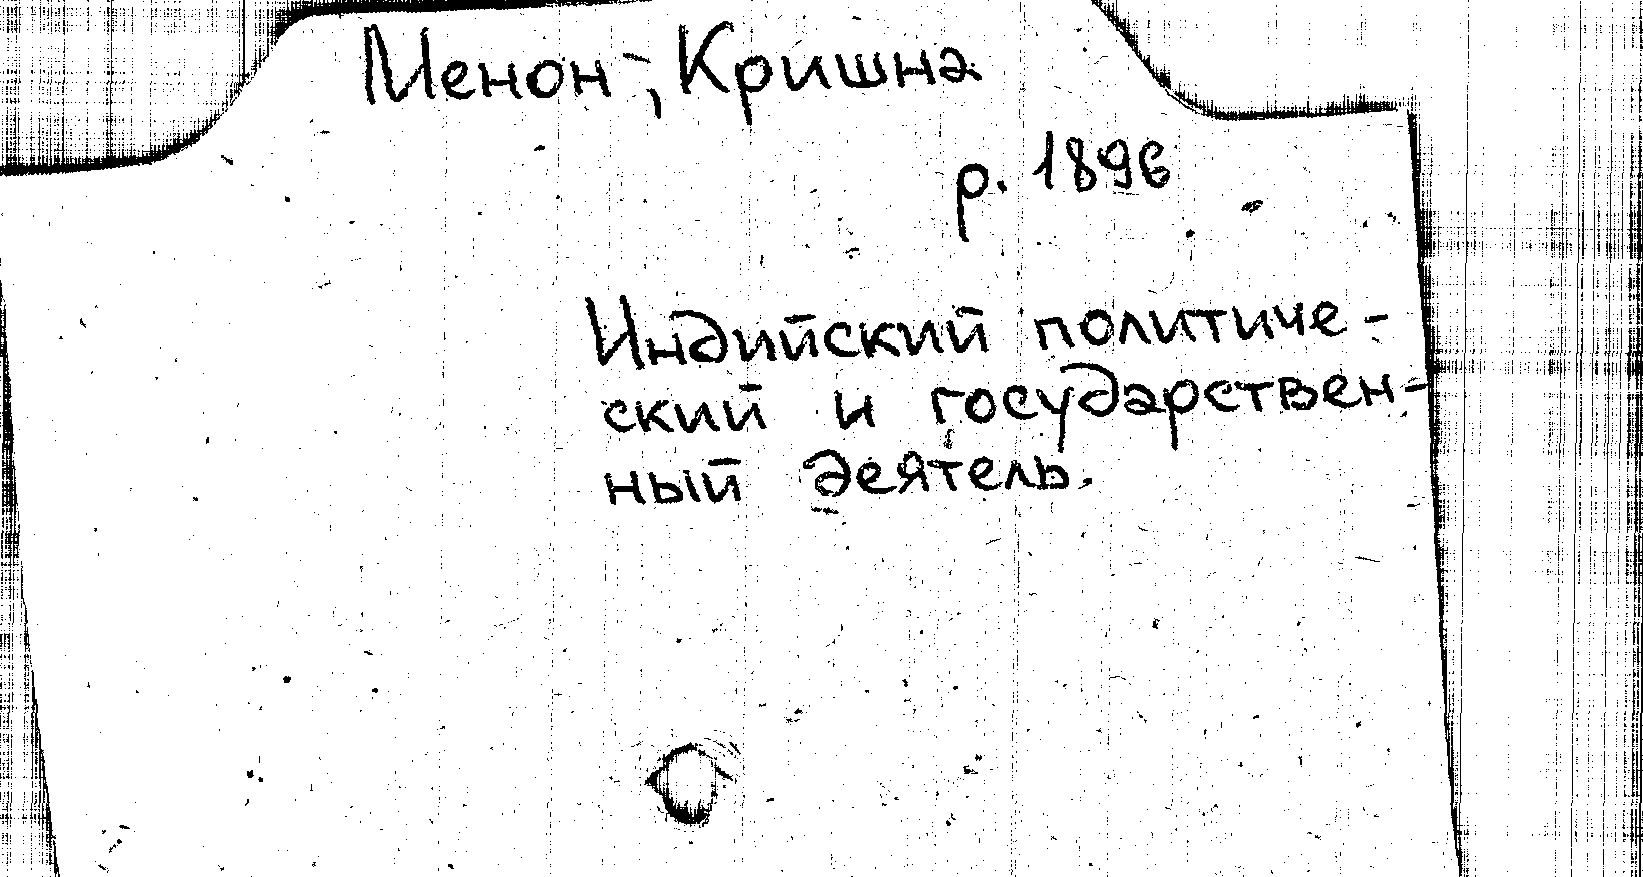 Менон, Кришна
р. 1896
Индийский политиче-
ский и государствен-
ный деятель.